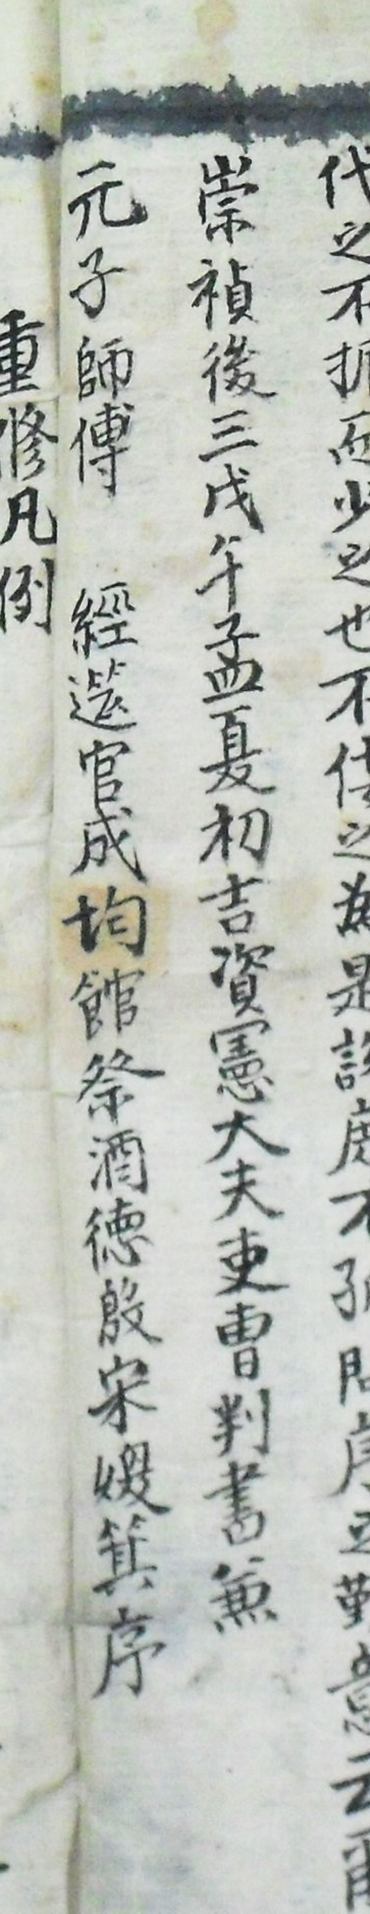 代之不折而少之也不佞之為是說庶不孤問序之勤意云爾
崇禎後三戊午孟夏初吉資憲大夫吏曹判書兼
元子師傅 經筵官成均館祭酒德殷宋煥箕序
重修凡例